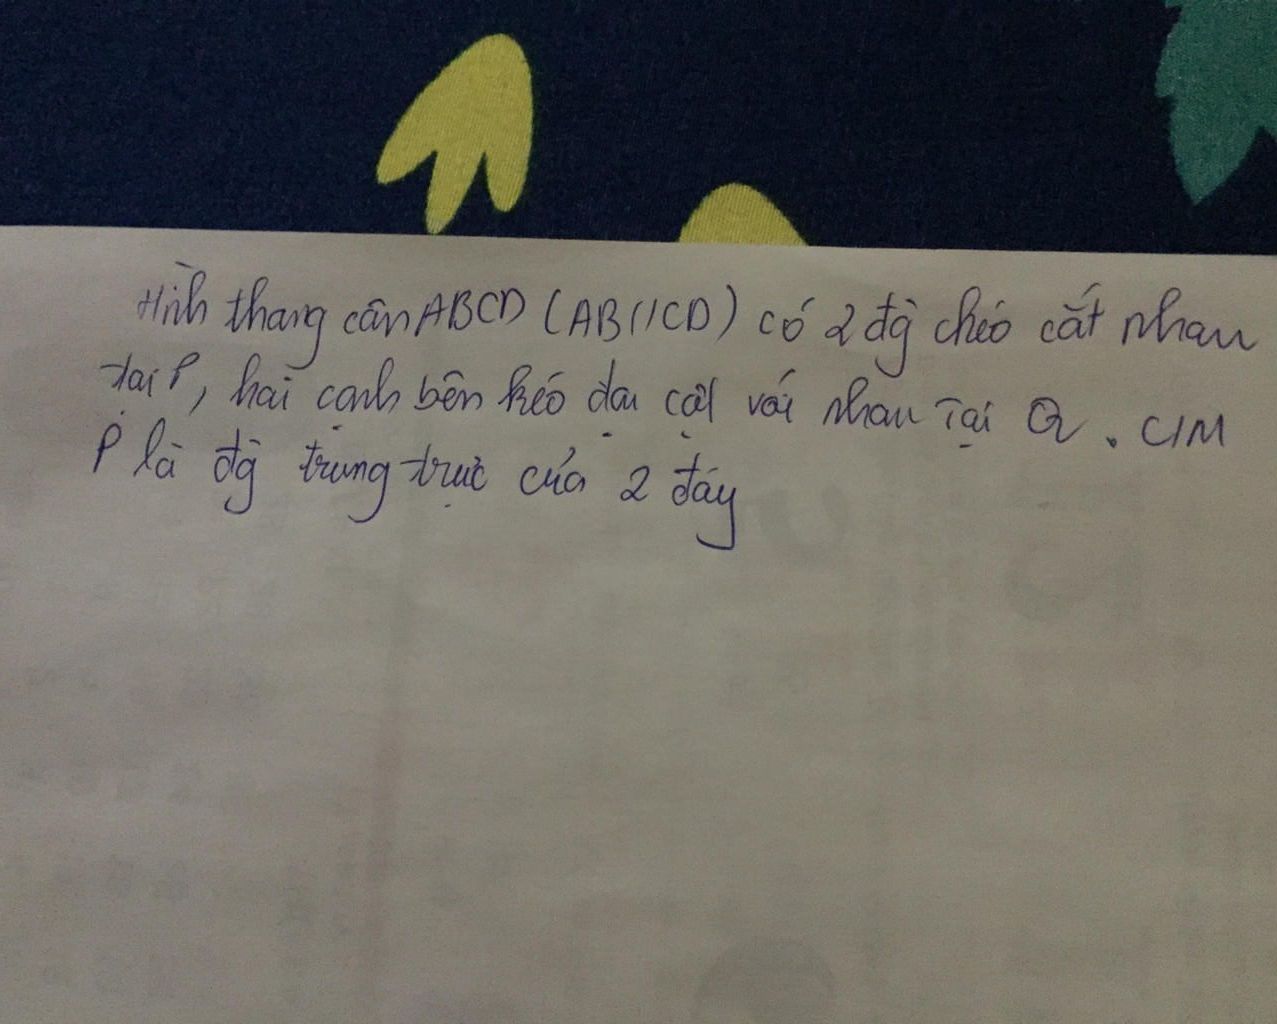 Hình thang cân ABCD (AB//CD) có 2 đg chéo cắt nhau
tại P, hai cạnh bên kéo dài cắt với nhau tại Q. C/M
P là đg trung trực của 2 đáy